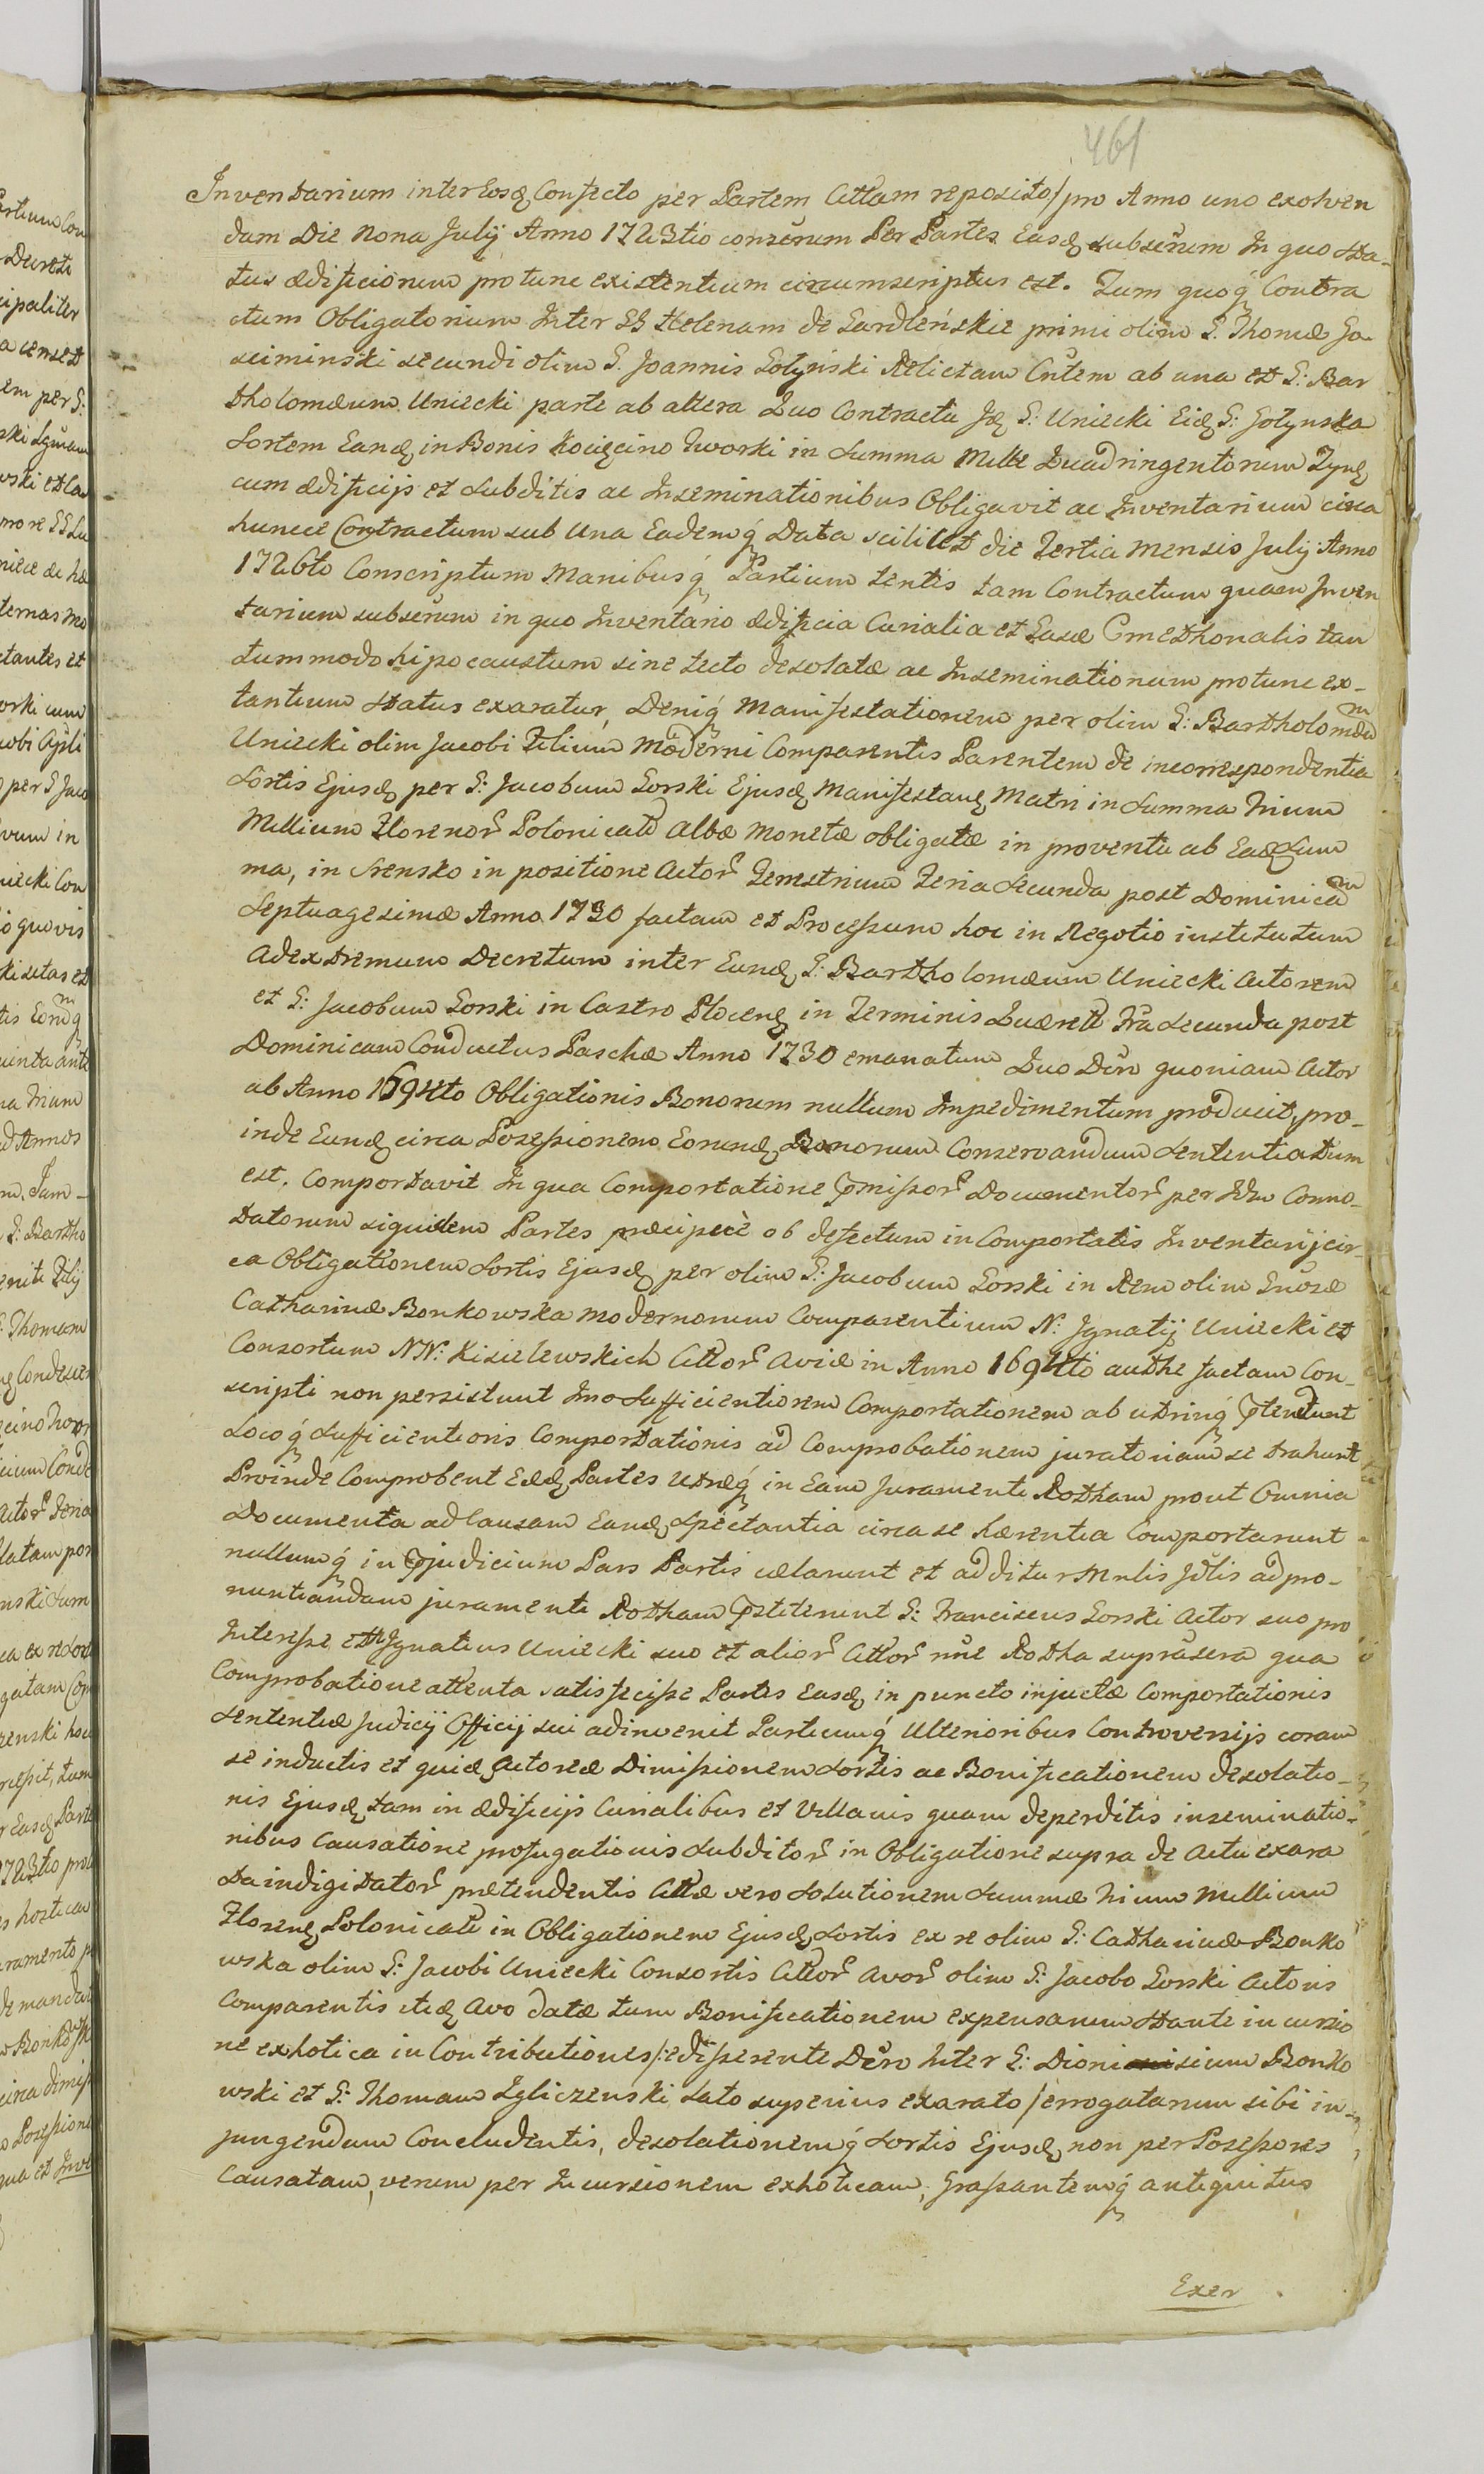 461
Inventarium inter Eosq Confecto per Partem Cittam reposito/ pro Anno uno exolven
dam Die Nona Julij Anno 1723tio conserum Per Partes Easq subserum In quo sta-
tus ædificiorum pro tunc existentium circumscriptus est. Tum quoq Contra
ctum Obligatorium Inter GG Helenam de primi olim G. Thomæ Go
sciminski secundi olim G. Joannis Gołyński Relictam Cntem ab una et G: Bar
tholomæum Uniecki parte ab altera Quo Contractu Jq G: Uniecki Eiq G: Gołynska
Sortem Eanq in Bonis Kocięcino Tworki in Summa Mille Quadringentorum Tynq
cum ædificijs et Subditis ac Inseminationibus Obligavit ac Inventarium circa
huncce Contractum sub Una Eademq Data scilicet die Tertia Mensis Julij Anno
1726to Conscriptum Manibusq Partium tentis tam Contractum quam Inven
tarium subserum in quo Inventario ædificia Curialia et Casæ Cmethonalis tan
tummodo hipocaustum sine tecto desolatæ ac Inseminationum protunc ex-
tantium status exaratur, Deniq Manifestationem per olim G: Bartholomæum
Uniecki olim Jacobi Filium Moderni Comparentis Parentem de incorrespondentia
Sortis Ejusq per G: Jacobum Gorski Ejusq Manifestanq Matri in Summa Trium
Millium Florenor Polonicali Albæ Monetæ obligatæ in proventu ab Eaq Sum
ma, in Srensko in positione Actor Terrestrium Feria Secunda post Dominicam
Septuagesimæ Anno 1730 factam et Processum hoc in Negotio institutum
Ad extremum Decretum inter Eunq G: Bartholomæum Uniecki Actorem
et G: Jacobum Gorski in Castro Plocenq in Terminis Quærell Fra Secunda post
Dominicam Conductus Paschæ Anno 1730 emanatum Quo Dcro quoniam Actor
ab Anno 1694to Obligationis Bonorum nullum Impedimentum producit, pro-
inde Eunq circa Possessionem Eorunq Bonorum Conservandum Sententiatum
est. Comportavit In qua Comportatione pmissor Documentor per Conno-
tatorum siquidem Partes præcipuè ob defectum in Comportatis Inventarij cir-
ca Obligationem Sortis Ejusq per olim G: Jacobum Gorski in Rem olim Gnosæ
Catharinæ Bonkowska modernorum Comparentium N: Ignatij Uniecki et
Consortum NN: Kisielewskich Cittor Aviæ in Anno 1694to authe factam Con-
scripti non persistunt Imo Sufficientiorem Comportationem ab utrinq ptendunt
Locoq Sufficientioris Comportationis ad Comprobationem juratoriam se trahunt
Proinde Comprobent Eæq Partes Utræq in Eam Juramenti Rotham prout Omnia
Documenta ad Causam Eanq Spectantia circa se hærentia Comportarunt
nullumq in pjudicium Pars Partis celarunt et additur Mnlis Jdtis ad pro-
nuntiandam juramenti Rotham pstiterunt G: Franciscus Gorski Actor suo pro
Interesse et Ignatius Uniecki suo et alior Cittor nne Rotha suprascra qua
Comprobatione attenta satisfecisse Partes Easq in puncto injuctæ Comportationis
Sententiæ Judicij Officij sui adinvenit Partiumq Ulterioribus Controversijs coram
se inductis et quiæ Actoreæ Dimissionem Sortis ac Bonificationem desolatio-
nis Ejusq tam in ædificijs Curialibus et Villanis quam deperditis inseminatio-
nibus Causatione profugationis Subditor in Obligatione supra de Actu exara
ta indigitator prætendentis Cittæ vero Solutionem Summæ Trium Millium
Florenq Polonicali in Obligationem Ejusq Sortis ex re olim G: Catharinæ Bonko
wska olim G: Jacobi Uniecki Consortis Cittor Avor olim G: Jacobo Gorski Actoris
Comparentis itiq Avo datæ tum Bonificationem expensarum stante incursio
ne exhotica in Contributiones/: edisserente Dcro Inter G: Dionisium Bonko
wski et G: Thomam Zgliczenski Lato superius exarato/ errogatarum sibi in-
jungendam Concludentis, desolationemq Sortis Ejusq non per Possessores
Causatam, verum per Incursionem exhoticam, Grassantemq antiquitus
Exer